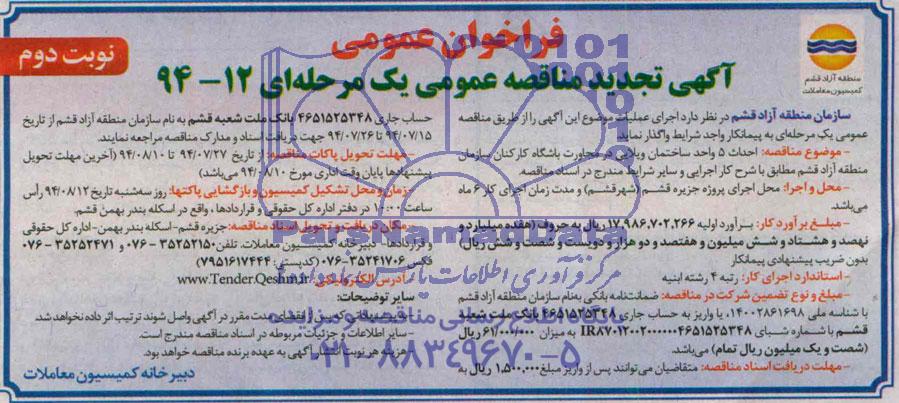 فراخوان عمومی
نوبت دوم
آگهی تجدید مناقصه عمومی یک مرحله‌ای ۱۲-۹۴
منطقه آزاد قشم
کمیسیون معاملات
سازمان منطقه آزاد قشم در نظر دارد اجرای عملیات موضوع این آگهی را از طریق مناقصه
عمومی یک مرحله‌ای به پیمانکار واجد شرایط واگذار نماید.
-موضوع مناقصه: احداث ۵ واحد ساختمان ویلایی در مجاورت باشگاه کارکنان سازمان
منطقه آزاد قشم مطابق با شرح کار اجرایی و سایر شرایط مندرج در اسناد مناقصه.
-محل و اجرا: محل اجرای پروژه جزیره قشم (شهر قشم) و مدت زمان اجرای کار ۶ ماه
می‌باشد.
-مبلغ برآورد کار: برآورد اولیه ۱۷,۹۸۶,۷۰۲,۲۶۶ ریال به حروف (هفده میلیارد و
نهصد و هشتاد و شش میلیون و هفتصد و دو هزار و دویست و شصت و شش ریال)
بدون ضریب پیشنهادی پیمانکار
-استاندارد اجرای کار: رتبه ۴ رشته ابنیه
-مبلغ و نوع تضمین شرکت در مناقصه: ضمانتنامه بانکی به‌نام سازمان منطقه آزاد قشم
با شناسه ملی ۱۴۰۰۲۸۶۱۶۹۸ یا واریز به حساب جاری ۴۶۵۱۵۲۵۳۴۸ بانک ملت شعبه
قشم با شماره شبای IR۸۷۰۱۲۰۰۲۰۰۰۰۰۰۴۶۵۱۵۲۵۳۴۸ به میزان ۶۱/۰۰۰/۰۰۰ ریال
(شصت و یک میلیون ریال تمام) می‌باشد.
-مهلت دریافت اسناد مناقصه: متقاضیان می‌توانند پس از واریز مبلغ ۱,۵۰۰,۰۰۰ ریال به
حساب جاری ۴۶۵۱۵۲۵۳۴۸ بانک ملت شعبه قشم به نام سازمان منطقه آزاد قشم از تاریخ
۹۴/۰۷/۱۵ تا ۹۴/۰۷/۲۶ جهت دریافت اسناد و مدارک مناقصه مراجعه نمایند.
-مهلت تحویل پاکات مناقصه: از تاریخ ۹۴/۰۷/۲۷ تا ۹۴/۰۸/۱۰ (آخرین مهلت تحویل
پیشنهادها پایان وقت اداری مورخ ۹۴/۰۸/۱۰ می‌باشد)
-زمان و محل تشکیل کمیسیون و بازگشایی پاکتها: روز سه‌شنبه تاریخ ۹۴/۰۸/۱۲ رأس
ساعت ۱۰:۰۰ در دفتر اداره کل حقوقی و قراردادها، واقع در اسکله بندر بهمن قشم.
-مکان دریافت و تحویل اسناد مناقصه: جزیره قشم- اسکله بندر بهمن- اداره کل حقوقی
و قراردادها- دبیرخانه کمیسیون معاملات. تلفن ۳۵۲۵۲۱۵۰-۰۷۶ و ۳۵۲۵۲۴۷۱-۰۷۶
فکس ۳۵۲۴۱۷۰۶-۰۷۶ (کدپستی: ۷۹۵۱۶۱۷۴۴۴)
-آدرس الکترونیکی: www.Tender.Qeshm.ir
سایر توضیحات:
-پیشنهاداتی که پس از انقضای مدت مقرر در آگهی واصل شوند ترتیب اثر داده نخواهد شد.
-سایر اطلاعات و جزئیات مربوطه در اسناد مناقصه مندرج است.
-هزینه هر نوبت انتشار آگهی به عهده برنده مناقصه خواهد بود.
دبیرخانه کمیسیون معاملات
مرکز فرآوری اطلاعات پارس نماد
۰۲۱-۸۸۳۴۹۶۷۰-۵